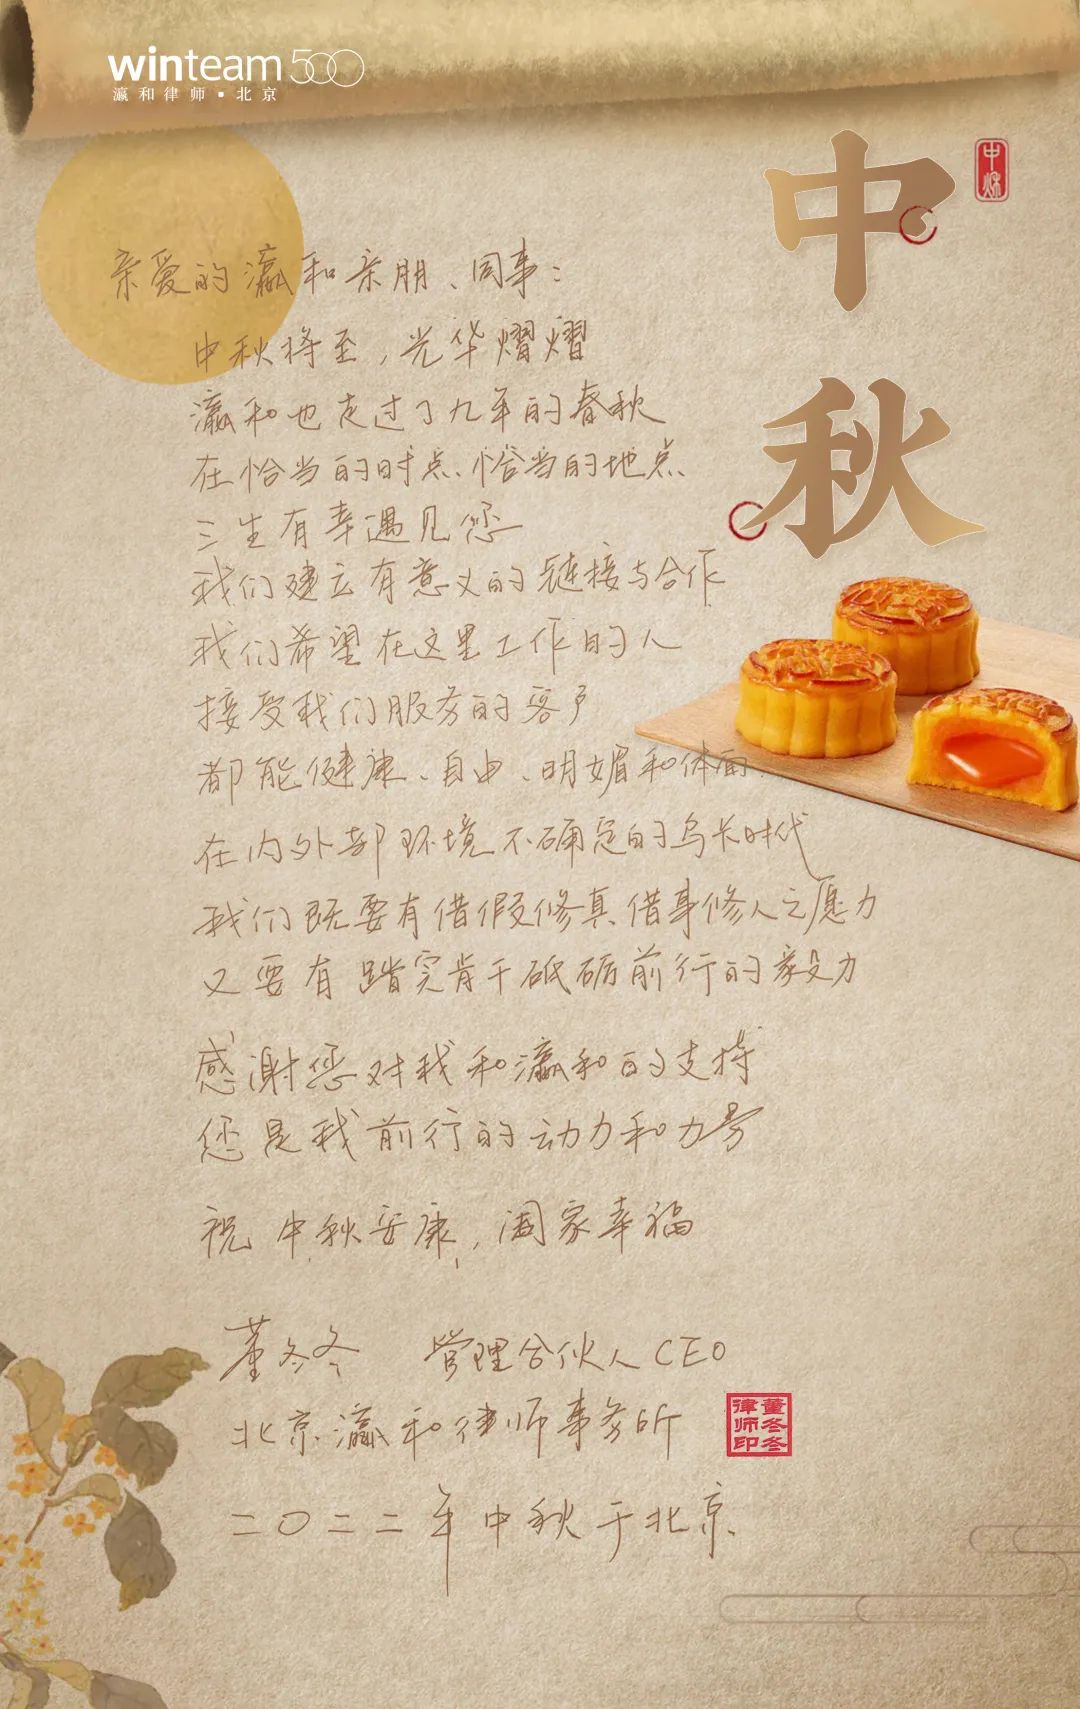 winteam500
瀛和律师·北京
中秋
中秋
亲爱的瀛和亲朋、同事：
中秋将至，光华熠熠
瀛和也走过了九年的春秋
在恰当的时点、恰当的地点
三生有幸遇见您
我们建立有意义的链接与合作
我们希望在这里工作的人
接受我们服务的客户
都能健康、自由、明媚和体面
在内外部环境不确定的乌卡时代
我们既要有借假修真、借事修人之愿力
又要有踏实肯干砥砺前行的毅力
感谢您对我和瀛和的支持
您是我前行的动力和力量
祝中秋安康，阖家幸福
董冬冬 管理合伙人CEO
北京瀛和律师事务所
董冬冬
律师印
二〇二二年中秋于北京